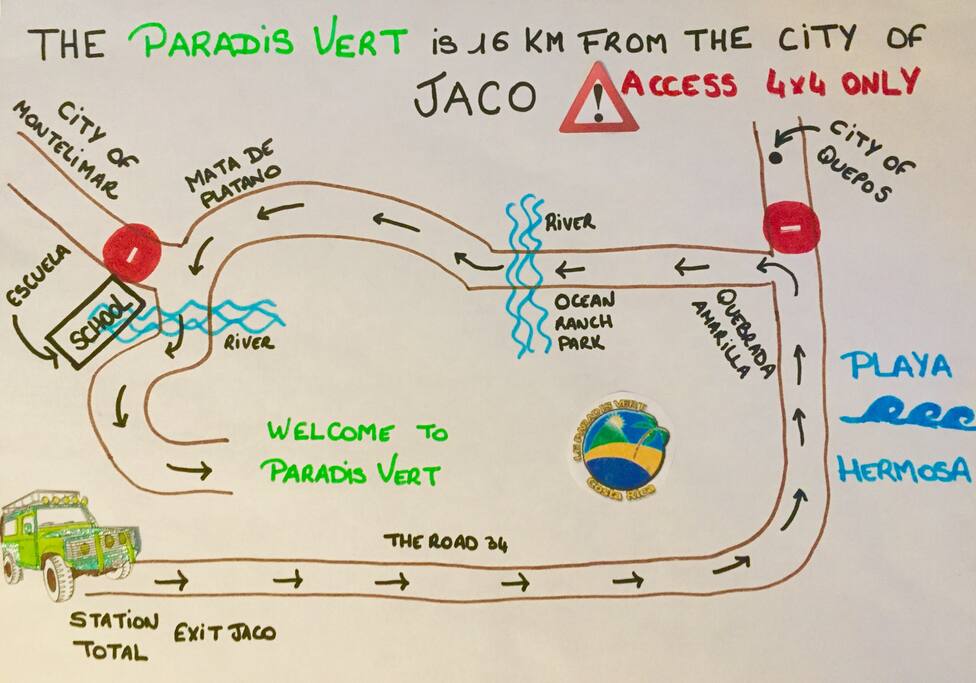 THE PARADIS VERT is 16 KM FROM THE CITY OF
JACO ! ACCESS 4x4 ONLY
CITY OF
MONTELIMAR
MATA DE
PLATANO
CITY OF
QUEPOS
RIVER
ESCUELA
SCHOOL
RIVER
OCEAN
RANCH
PARK
QUEBRADA
AMARILLA
PLAYA
HERMOSA
WELCOME TO
PARADIS VERT
LE PARADIS VERT
COSTA RICA
THE ROAD 34
STATION
TOTAL
EXIT JACO